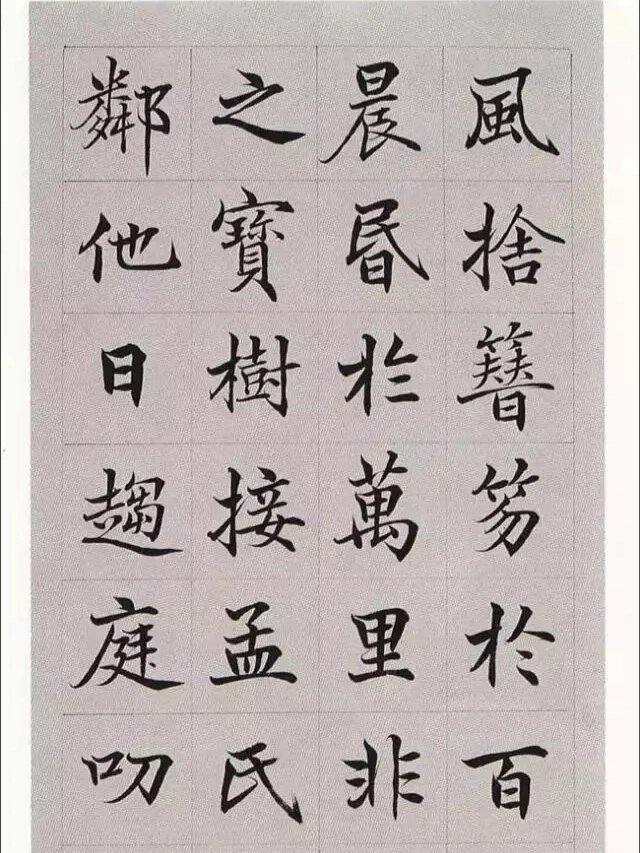 風捨簪笏於百
晨昏於萬里非
之寶樹接孟氏
鄰他日趨庭叨